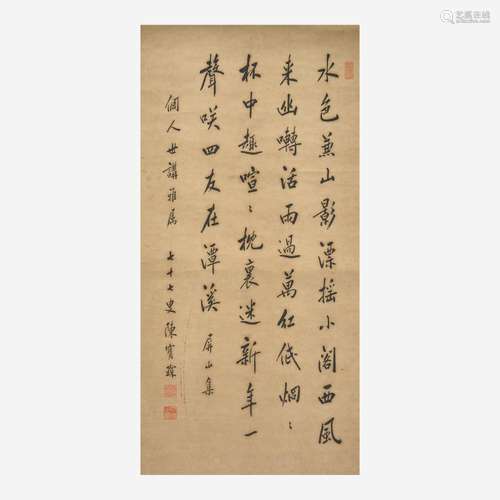 艺狐在线
水色兼山影漂搖小閣西風
来幽囀活雨過萬紅低烟〻
杯中趣喧〻枕裏迷新年一
聲咲四友在潭溪 屏山集
個人世講雅属 七十七叟陳寶琛